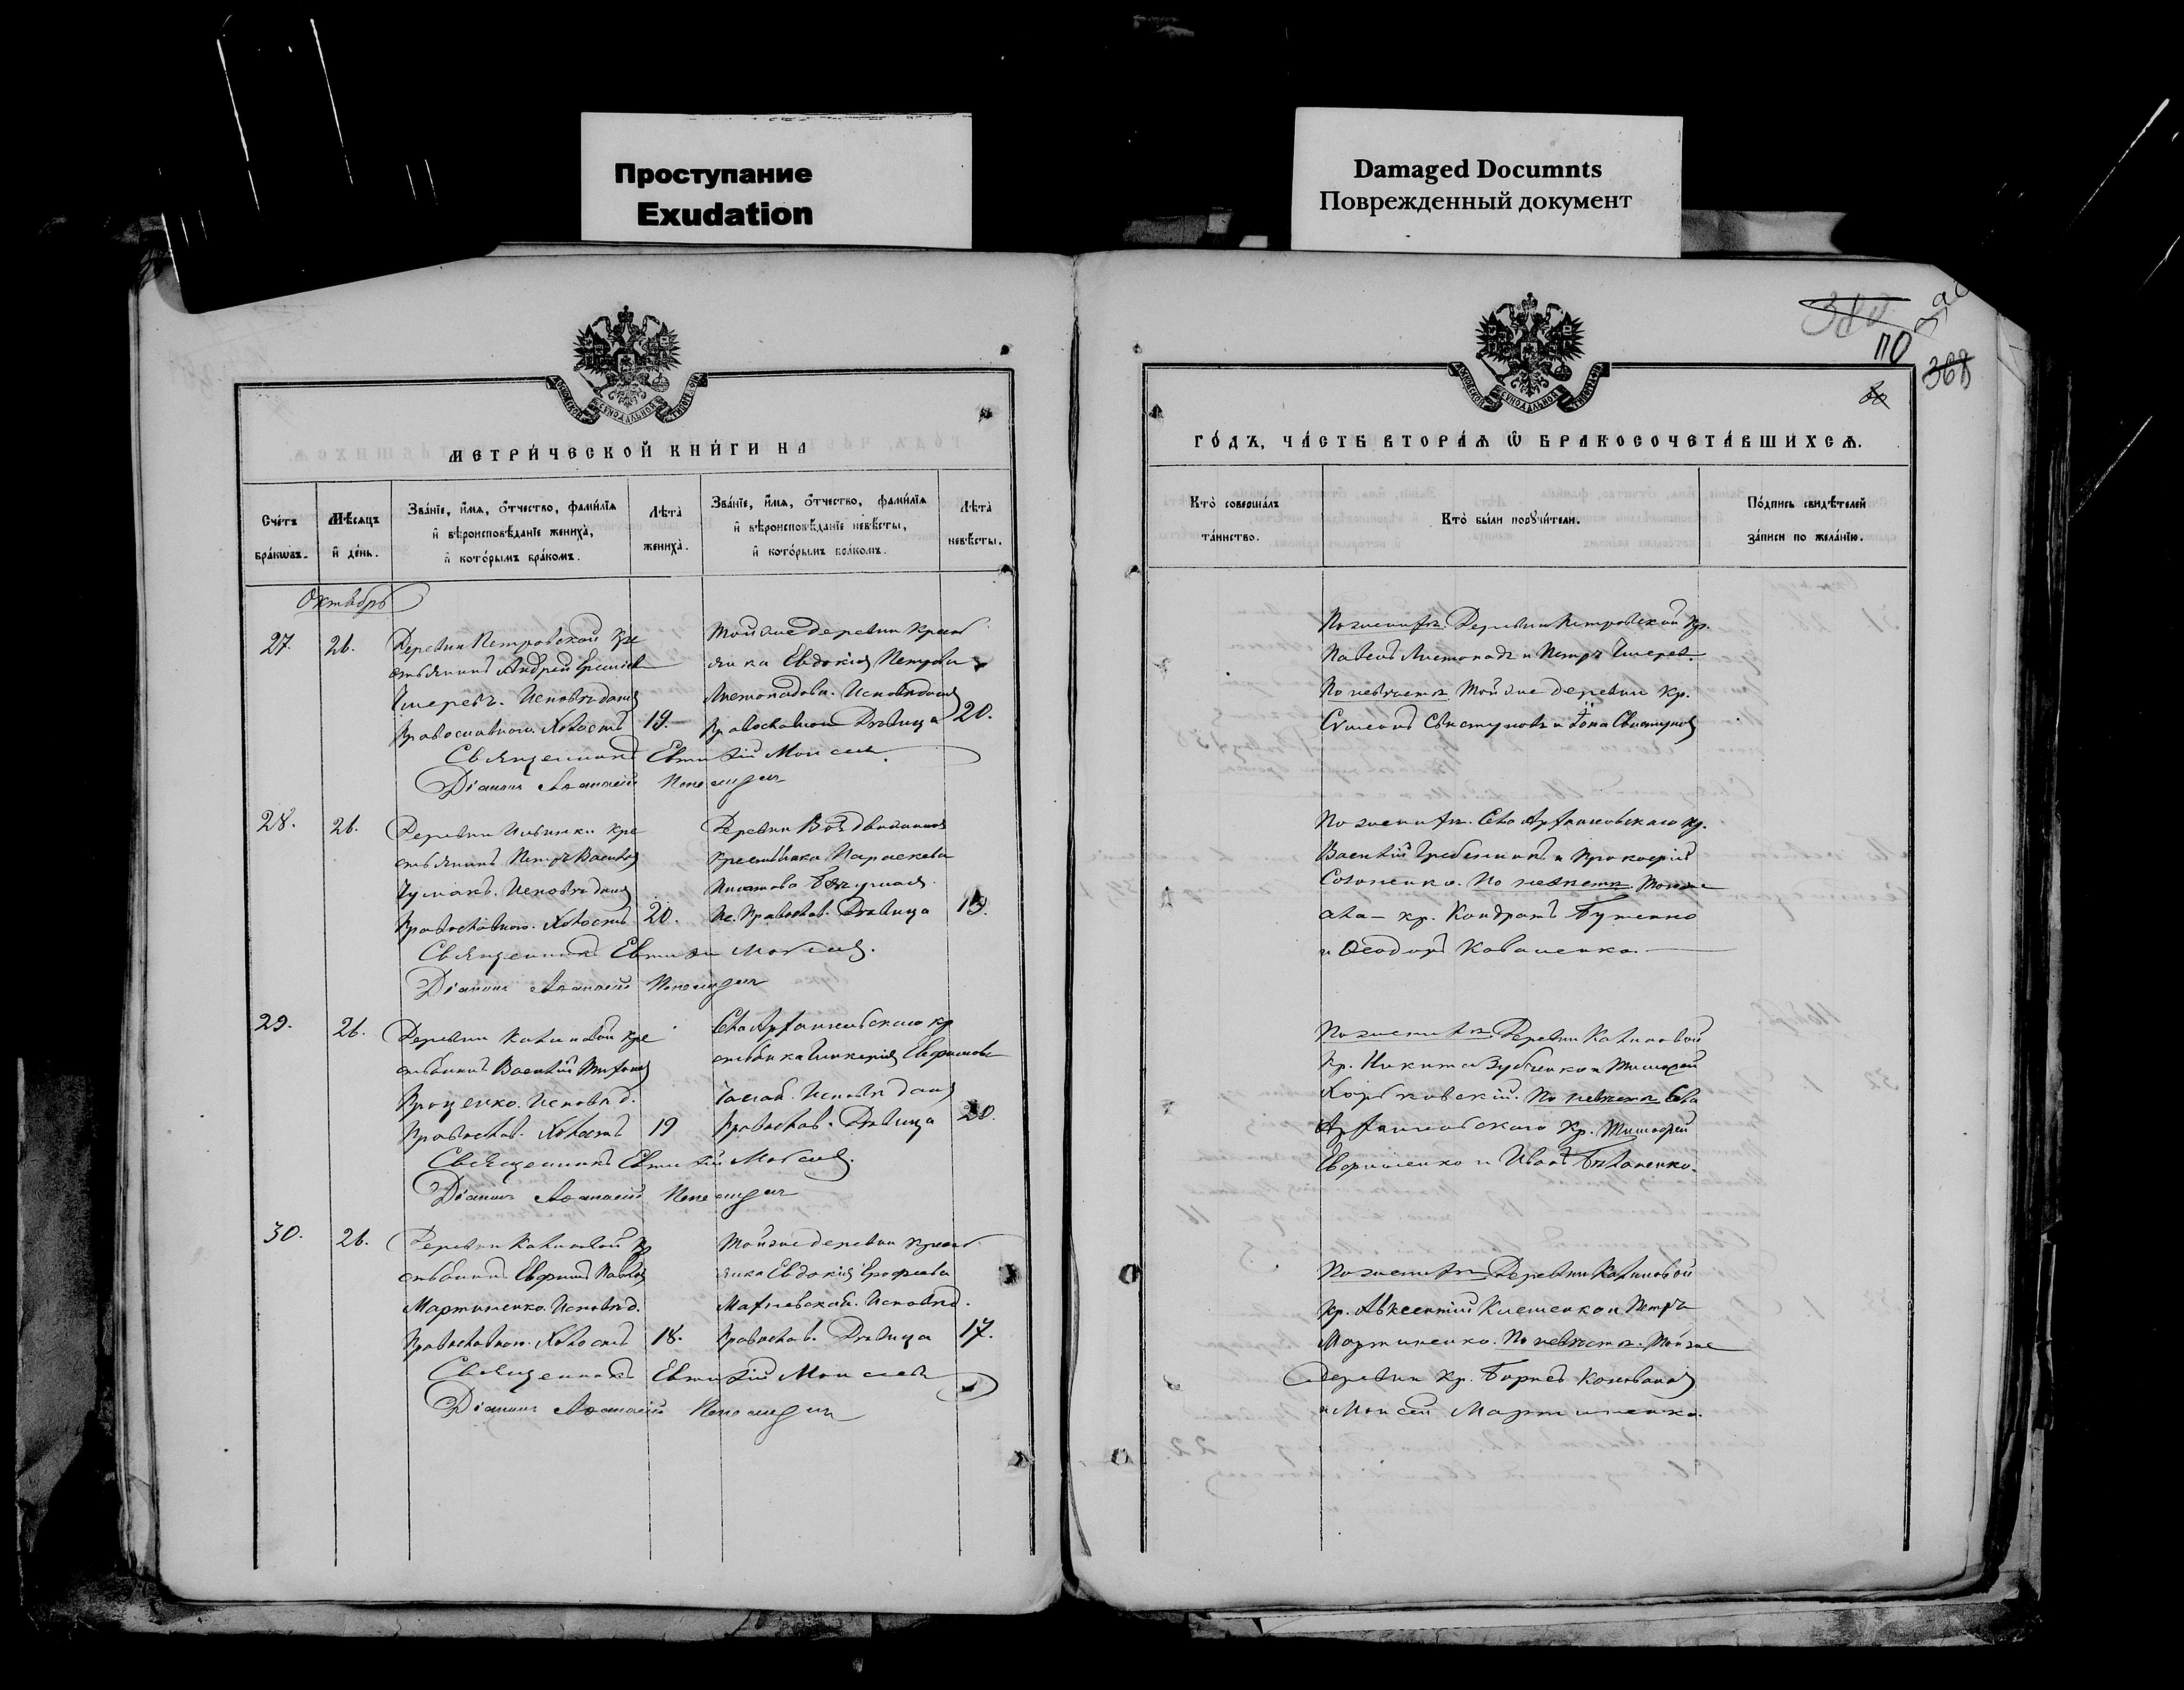 Проступание
Exudation
Damaged Documnts
Поврежденный документ
МЕТРИ́ЧЕСКОЙ КНИ́ГИ НА
Сче́тъ бра́кѡвъ.
Мѣ́сяцъ и де́нь.
Зва́нїе, и́мѧ, ѻ́тчество, фами́лїѧ и вѣроисповѣ́данїе жениха̀, и кото́рымъ бра́комъ.
Лѣ́та жениха̀.
Зва́нїе, и́мѧ, ѻ́тчество, фами́лїѧ и вѣроисповѣ́данїе невѣ́сты, и кото́рымъ бра́комъ.
Лѣ́та невѣ́сты.
Октябрь
27.
26.
Деревни Петровской кре
стьянинъ Андрей
Исповѣданія
Православнаго. Холостъ
19.
Той же деревни крест
янка Евдокія Петрова
Листопадова. Исповѣданія
Православнаго Дѣвица
20.
Священникъ Евтихій Моисеев
Діаконъ Аѳанасій
28.
26.
Деревни Ильинки кре
стьянинъ Петръ Васильев
Чумакъ. Исповѣданія
Православнаго. Холостъ
20.
Деревни Воздвиженской
Крестьянка Параскева
Ис. Православ. Дѣвица
19.
Священникъ Евтихій Моисеев.
Діаконъ Аѳанасій
29.
26.
Деревни Калиновой кре
стьянинъ Василій
Проценко. Исповѣд.
Православ. Холостъ
19
Села Архангельскаго кр
стьянка Гликерія Евфимова
Исповѣданія
Православ. Дѣвица
20.
Священникъ Евтихій Моисеев.
Діаконъ Аѳанасій
30.
26.
Деревни Калиновой кр
стьянинъ Евфимъ Павлов
Мартиненко. Исповѣд.
Православнаго. Холостъ
18.
Той же деревни крест
янка Евдокія Ерофеева
Исповѣд.
Православ. Дѣвица
17.
Священникъ Евтихій Моисеев
Діаконъ Аѳанасій
110
368
ГО́ДЪ, ЧА́СТЬ ВТОРА́Ѧ Ѡ БРАКОСОЧЕТА́ВШИХСѦ.
Кто̀ соверша́лъ та́инство.
Кто̀ бы́ли порꙋчи́тели.
По́дпись свидѣ́телей за́писи по жела́нїю.
По женихѣ Деревни Петровской кр.
Павелъ Листопадъ и Петръ
По невѣстѣ Той же деревни кр.
Симеонъ Свистуновъ и Іона Свистунов
По женихѣ. Села Архангельскаго кр.
Василій Гребенникъ и Прокофій
Солоненко. По невѣстѣ. Тогоже
села кр. Кондратъ Бутенко
и Ѳеодоръ Коваленко.
По женихѣ Деревни Калиновой
кр. Никита Зубченко и Тимофей
По невѣстѣ Села
Архангельскаго кр. Тимофей
Евфименко и Иванъ Бѣланенко.
По женихѣ Деревни Калиновой
кр. Авксентій Клеменко и Петръ
Мартиненко. По невѣстѣ. Той же
Деревни кр. Борисъ Коновалов
и Моисей Мартиненко.